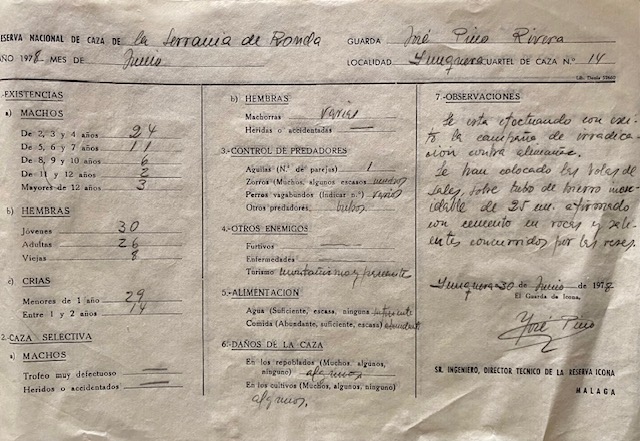 RESERVA NACIONAL DE CAZA DE la Serrania de Ronda
GUARDA José Pino Rivera
AÑO 1978 MES DE Junio
LOCALIDAD Yunquera CUARTEL DE CAZA N.º 14
1.-EXISTENCIAS
a) MACHOS
De 2, 3 y 4 años 24
De 5, 6 y 7 años 11
De 8, 9 y 10 años 6
De 11 y 12 años 2
Mayores de 12 años 3
b) HEMBRAS
Jóvenes 30
Adultas 26
Viejas 8
c) CRIAS
Menores de 1 año 29
Entre 1 y 2 años 14
2.-CAZA SELECTIVA
a) MACHOS
Trofeo muy defectuoso —
Heridos o accidentados —
b) HEMBRAS
Machorras varias
Heridas o accidentadas —
3.-CONTROL DE PREDADORES
Aguilas (N.º de parejas) 1
Zorros (Muchos, algunos escasos) muchos
Perros vagabundos (Indicar n.º) varios
Otros predadores, buhos
4.-OTROS ENEMIGOS
Furtivos —
Enfermedades —
Turismo montañismo y
5.-ALIMENTACION
Agua (Suficiente, escasa, ninguna suficiente
Comida (Abundante, suficiente, escasa) abundante
6.-DAÑOS DE LA CAZA
En los repoblados (Muchos, algunos,
ninguno) algunos
En los cultivos (Muchos, algunos, ninguno)
algunos.
7.-OBSERVACIONES
Se esta efectuando con exi-
to la campaña de irradica-
ción contra alimañas.
Se han colocado las bolas de
sales, sobre tubo de hierro inox-
idable de 25 mm. aprisionado
con cemento en rocas y sali-
entes concurridos por las reses.
Yunquera 30 de Junio de 1978
El Guarda de Icona,
José Pino
SR. INGENIERO, DIRECTOR TECNICO DE LA RESERVA ICONA
MALAGA